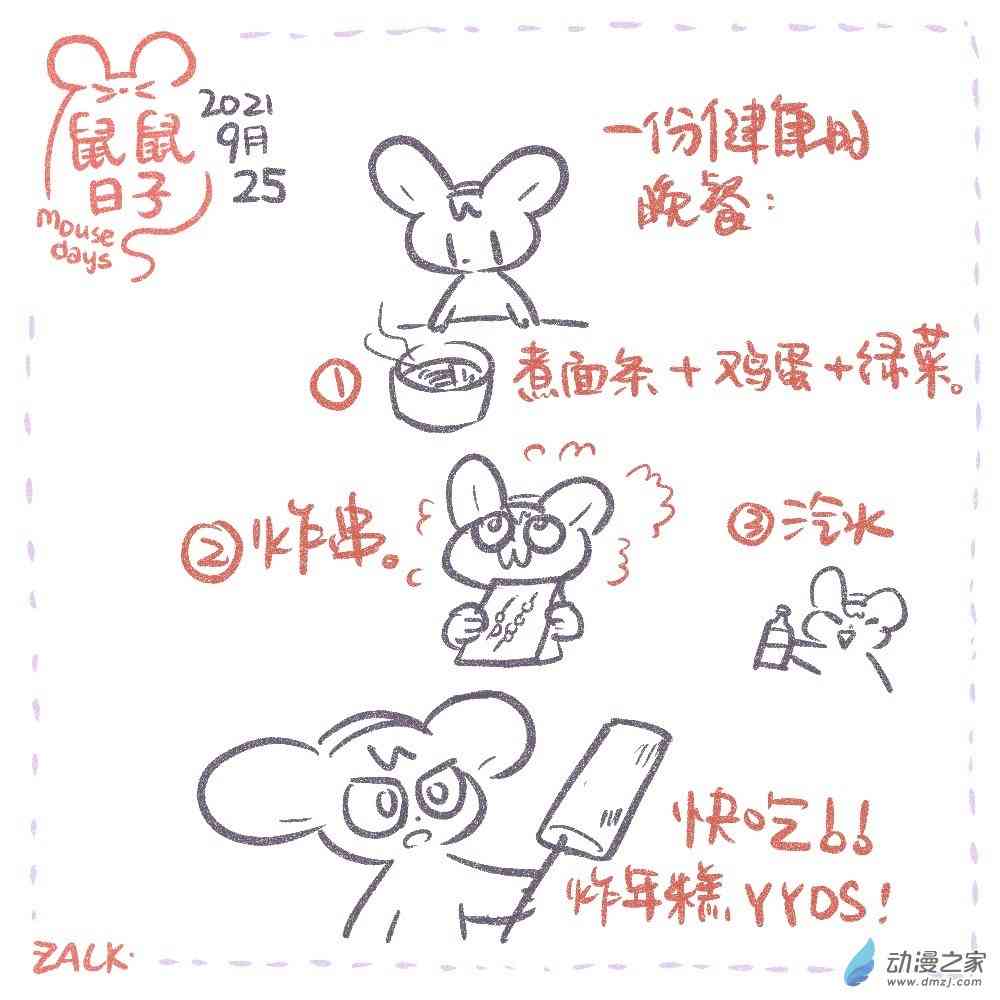 鼠鼠
日子
mouse
days
2021
9月
25
一份健康的
晚餐：
① 煮面条+鸡蛋+绿菜。
② 炸串。
③ 冷水
快吃!!
炸年糕YYDS!
ZALK.
动漫之家
www.dmzj.com